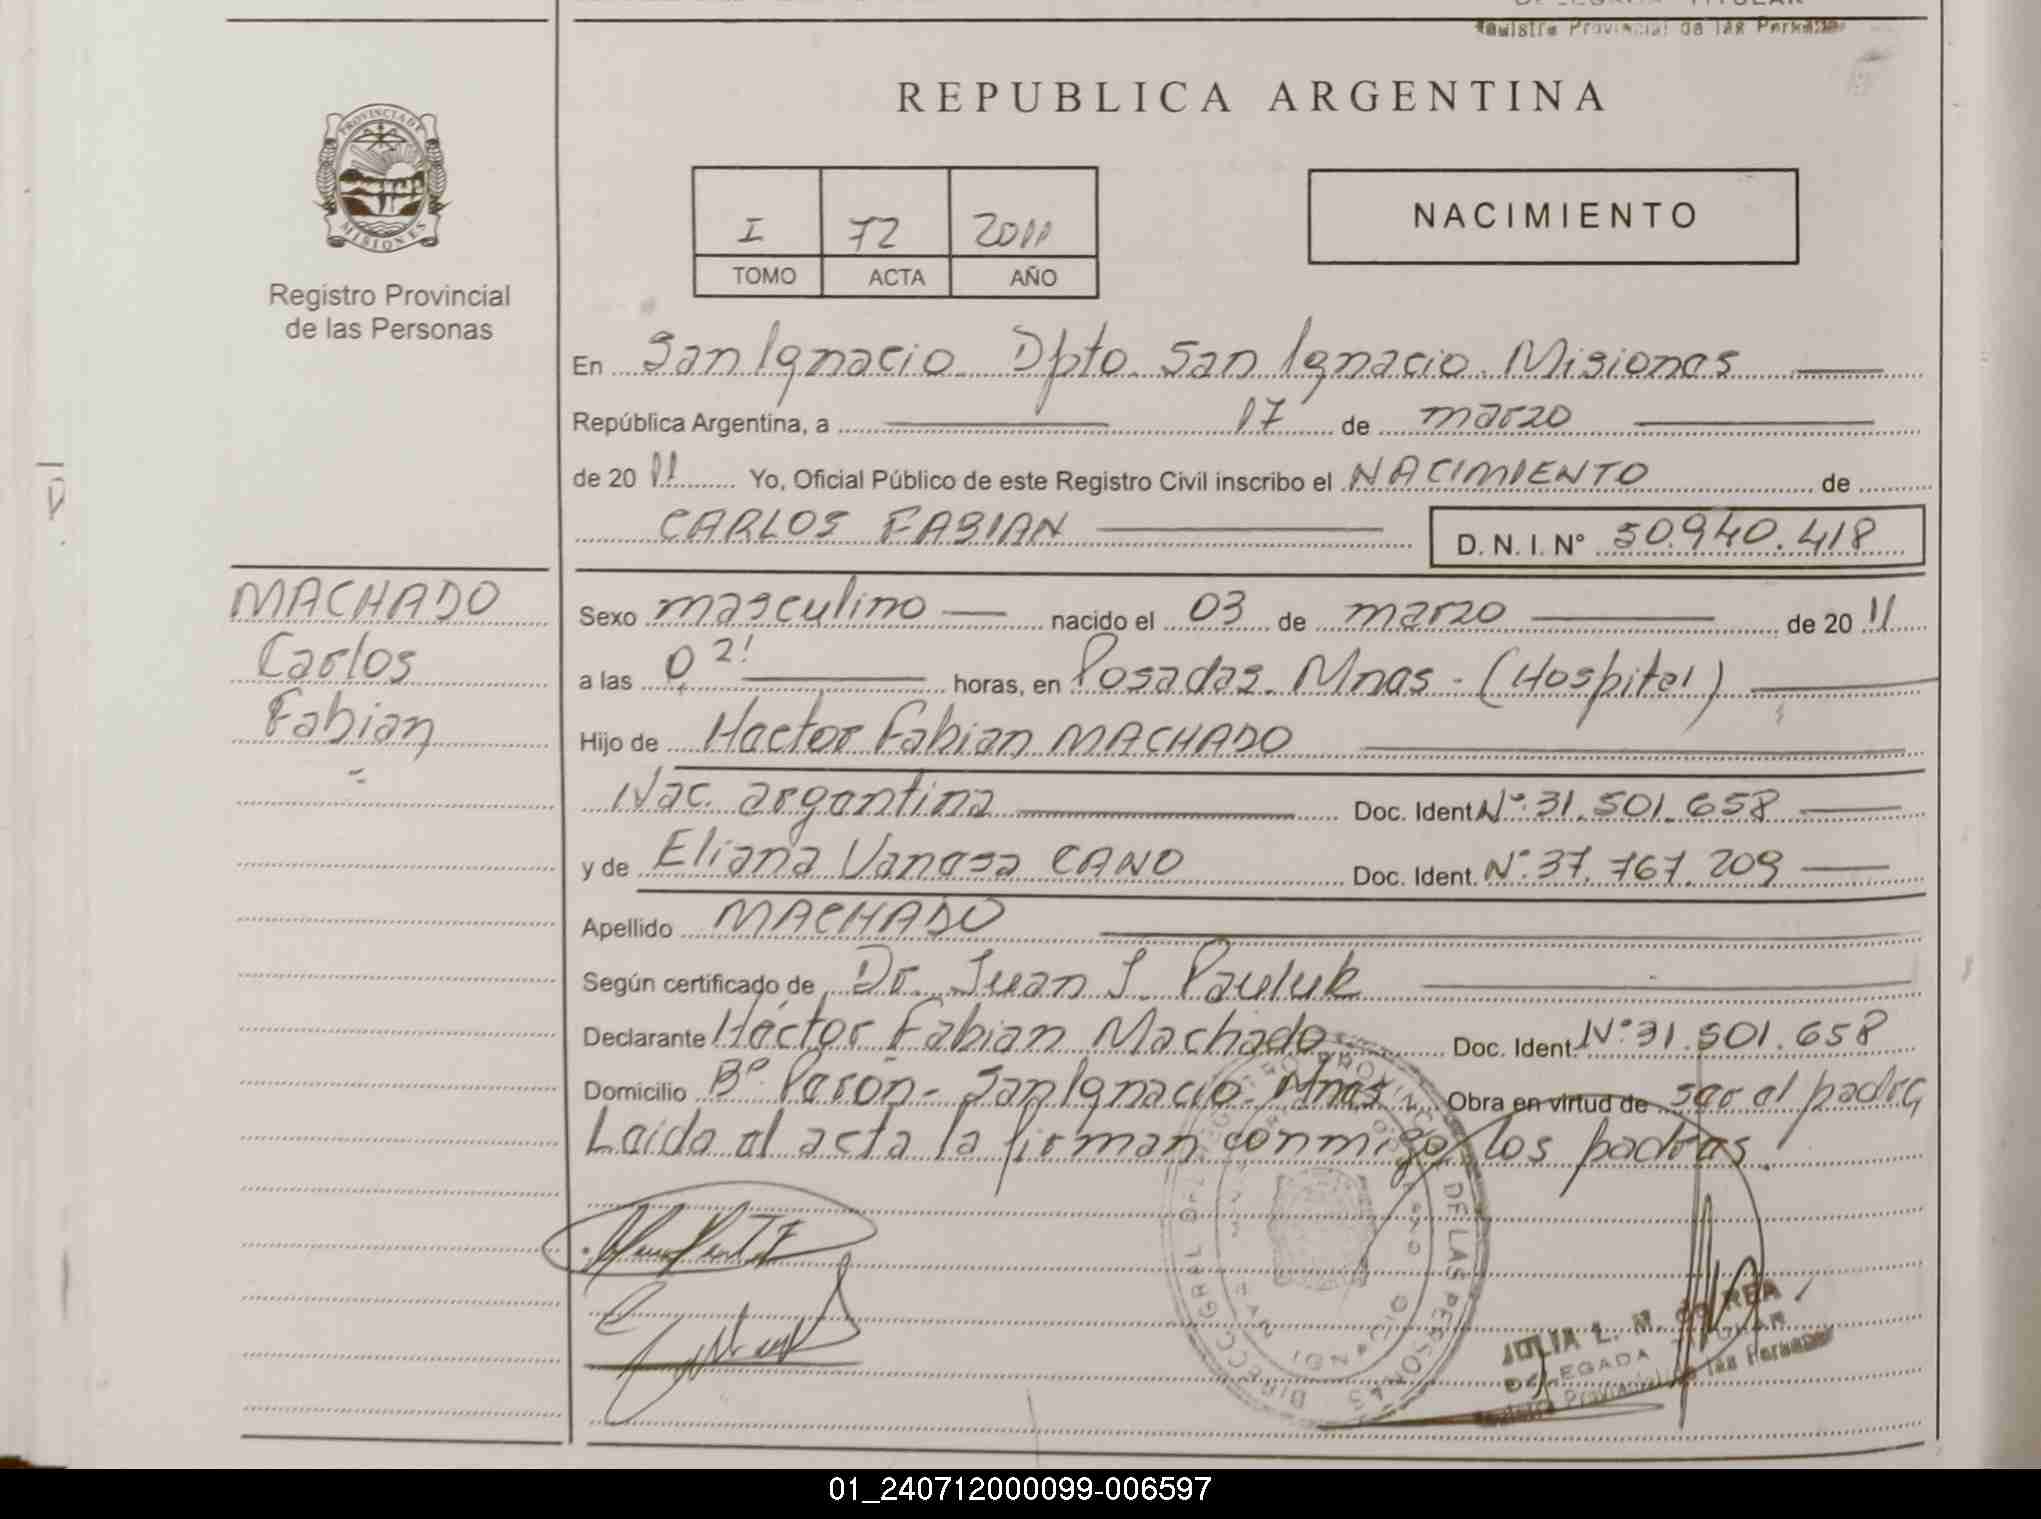 Registro Provincial de las Personas
REPUBLICA ARGENTINA
PROVINCIA DE MISIONES
Registro Provincial
de las Personas
I 72 2011
TOMO ACTA AÑO
NACIMIENTO
En San Ignacio Dpto. San Ignacio. Misiones
República Argentina, a 17 de marzo
de 2011 Yo, Oficial Público de este Registro Civil inscribo el NACIMIENTO de
CARLOS FABIAN D.N.I. Nº 50.940.418
MACHADO
Carlos
Fabian
Sexo masculino nacido el 03 de marzo de 2011
a las 02! horas, en Posadas. Mnes - (Hospital)
Hijo de Hector Fabian MACHADO
Nac. argentina Doc. Ident Nº 31.501.658
y de Eliana Vanesa CANO Doc. Ident. Nº 37.767.209
Apellido MACHADO
Según certificado de Dr. Juan J. Pauluk
Declarante Héctor Fabian Machado Doc. Ident. Nº 31.501.658
Domicilio Bº Perón - San Ignacio. Mnes Obra en virtud de ser el padre
Leida el acta la firman conmigo los padres.
JULIA L. M. CORREA
DELEGADA TITULAR
Registro Provincial de las Personas
01_240712000099-006597